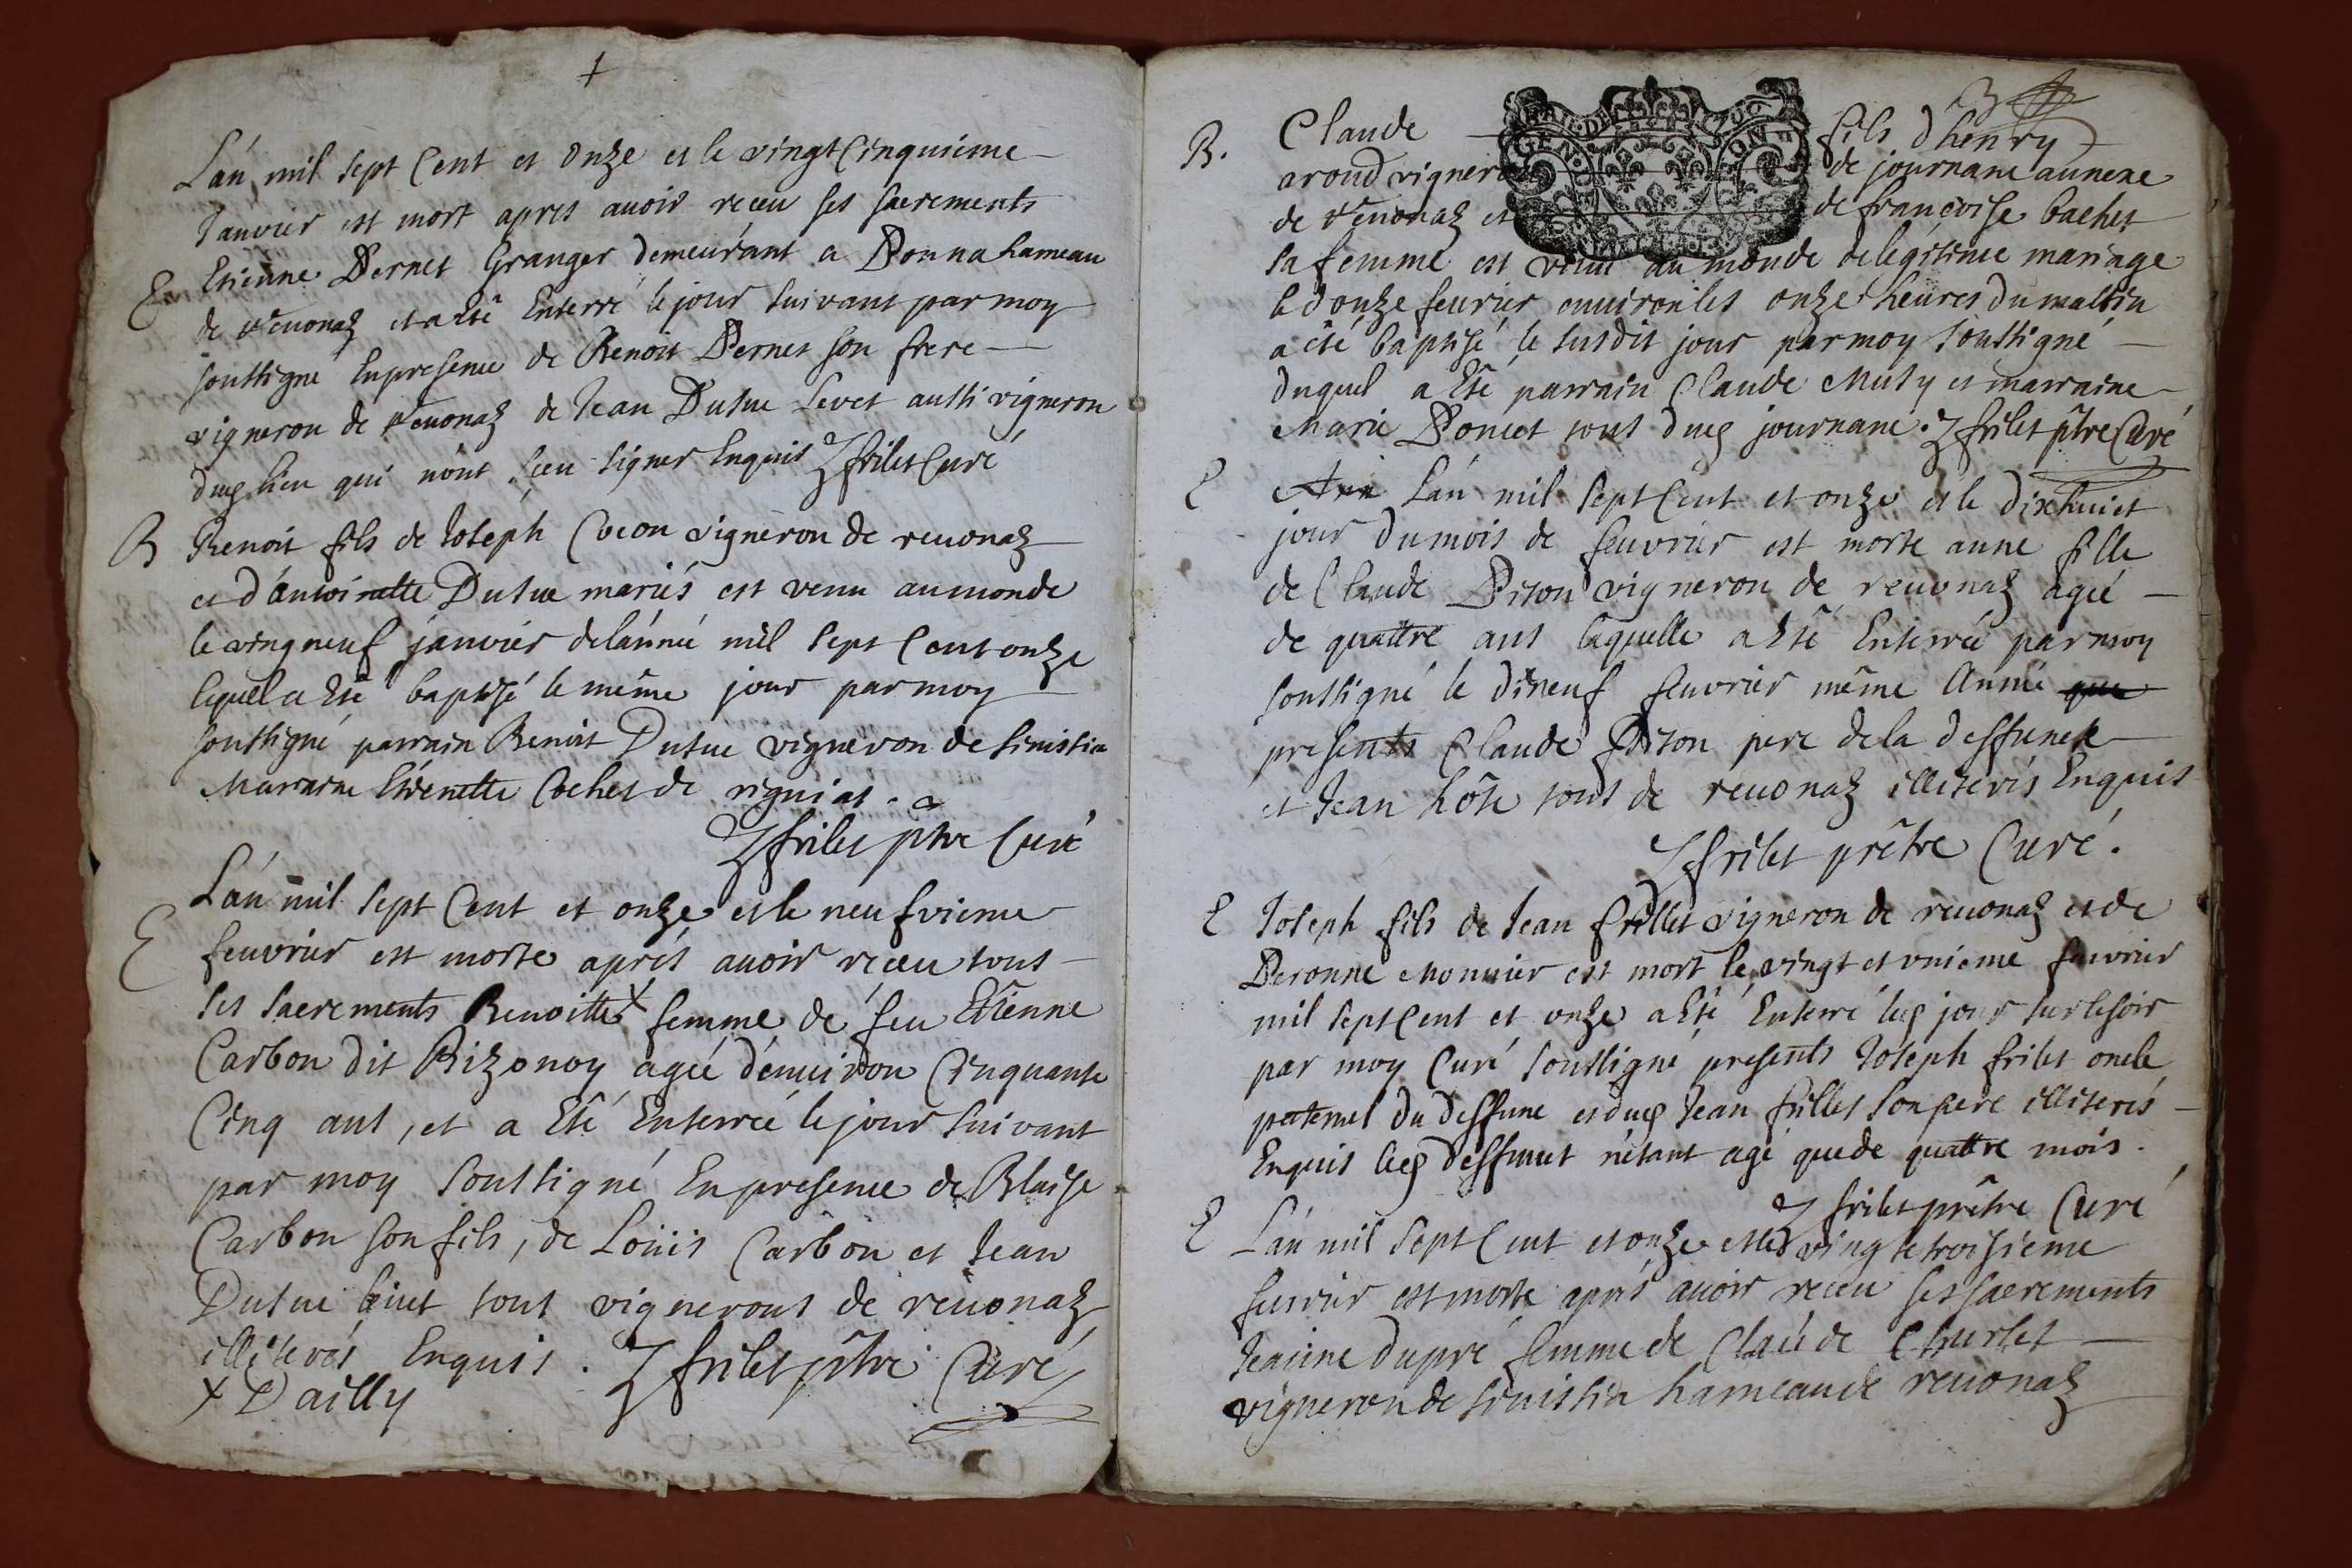 +
L'an mil sept Cent et Onze et le vingt Cinquieme
Janvier est mort apres avoir receu ses sacrements
E Etienne Pernet Granger demeurant a Bonna hameau
de revonaz et a eté Enterré le jour suivant par moy
soussigné En presence de Benoit Pernet son frere
vigneron de revonaz de Jean Dutue Sevet aussi vigneron
dud. lieu qui n'ont sceu signer Enquis frilet Curé
B Benoit fils de Joseph Cocon vigneron de revonaz
et d'antoinette Dutue mariés est venu au monde
le vingneuf janvier de l'année mil sept Cent onze
lequel a Eté baptisé le même jour par moy
soussigné parrain Benoit Dutue vigneron de Sénissia
Marraine Etienette Cochet de rigniat.
frilet ptre Curé
E L'an mil sept Cent et onze et le neufvieme
feuvrier est morte aprés avoir receu tous
ses sacrements Benoitte + femme de feu Etienne
Carbon dit Bizonoy agée d'environ Cinquante
Cinq ans, et a Eté Enterrée le jour suivant
par moy soussigné En presence de Blaise
Carbon son fils, de Loüis Carbon et Jean
Dutue tous vignerons de revonaz
illiterés Enquis. frilet ptre Curé
+ Dailly
B. Claude fils d'henry
aroud vigneron de journans annexe
de revonaz et de francoise bachet
sa femme est venu au monde de légitime mariage
le douze feurier environ les onze heures du mattin
a été baptisé le susdit jour par moy soussigné
duquel a Eté parrain Claude Muty et marraine
Marie Poncet tous dud. journans. frilet ptre Curé
E L'an mil sept Cent et onze et le dixhuict
jour du mois de feuvrier est morte anne fille
de Claude Piton vigneron de revonaz agée
de quattre ans laquelle a Eté Enterrée par moy
soussigné le dineuf feuvrier même Année que
presents Claude Piton pere de la deffuncte
et Jean hôte tous de revonaz illiterés Enquis
frilet prêtre Curé.
E Joseph fils de Jean frillet vigneron de revonaz et de
Peronne Monnier est mort le vingt et unieme feuvrier
mil sept Cent et onze a Eté Enterré led. jour sur le soir
par moy Curé soussigné presents Joseph frilet oncle
paternel du deffunc et dud. Jean frillet son pere illiterés
Enquis led. deffunct n'etant agé que de quattre mois.
frilet prêtre Curé
E L'an mil sept Cent et onze et le vingt troisieme
feuvrier est morte aprés avoir receu ses sacrements
Jeanne dupré femme de Claude Churlet
vigneron de sénissia hameau de revonaz